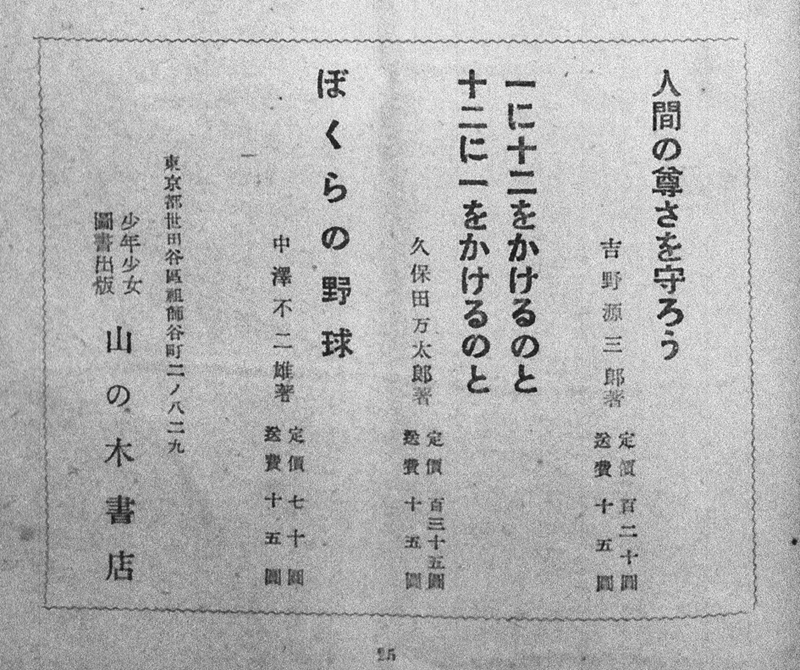 人間の尊さを守ろう
吉野源三郎著
定價 百二十圓
送費 十五圓
一に十二をかけるのと
十二に一をかけるのと
久保田万太郎著
定價 百三十五圓
送費 十五圓
ぼくらの野球
中澤不二雄著
定價 七十圓
送費 十五圓
東京都世田谷區祖師谷町二ノ八二九
少年少女
圖書出版
山の木書店
25